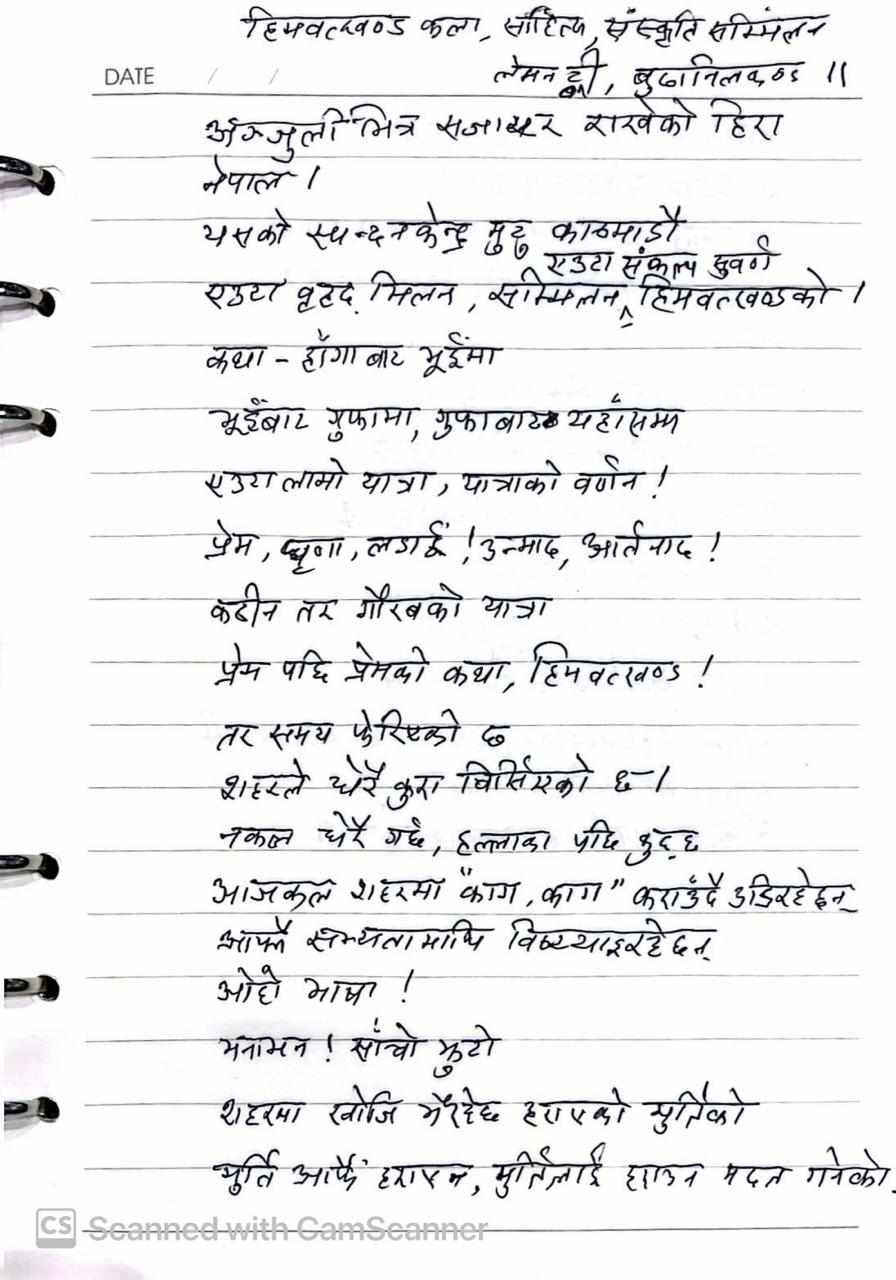 हिमवत्खण्ड कला, साहित्य, संस्कृति सम्मिलन
DATE / / लेमन ट्री, बुढानिलकण्ठ ॥
अञ्जुली भित्र सजाएर राखेको हिरा
नेपाल ।
यसको स्पन्दन केन्द्र मुटु काठमाडौं
एउटा संकल्प सुवर्ण
एउटा वृहद् मिलन, सम्मिलन, हिमवत्खण्डको ।
कथा - हाँगा बाट भूईंमा
भूईंबाट गुफामा, गुफाबाट यहाँसम्म
एउटा लामो यात्रा, यात्राको वर्णन !
प्रेम, घृणा, लडाईं ! उन्माद, आर्तनाद !
कठीन तर गौरबको यात्रा
प्रेम पछि प्रेमको कथा, हिमवत्खण्ड !
तर समय फेरिएको छ
शहरले धेरै कुरा बिर्सिएको छ ।
नकल धेरै गर्छ, हल्लाका पछि कुद्छ
आजकल शहरमा "काग, काग" कराउँदै उडिरहेछन्
आफ्नै सभ्यतामाथि विष्ट्याइरहेछन्
ओहो भाषा !
मनामन ! साँचो झुटो
शहरमा खोजि भैरहेछ हराएको मुर्तिको
मुर्ति आफैं हराएन, मुर्तिलाई हराउन मदत गरेको
CS Scanned with CamScanner